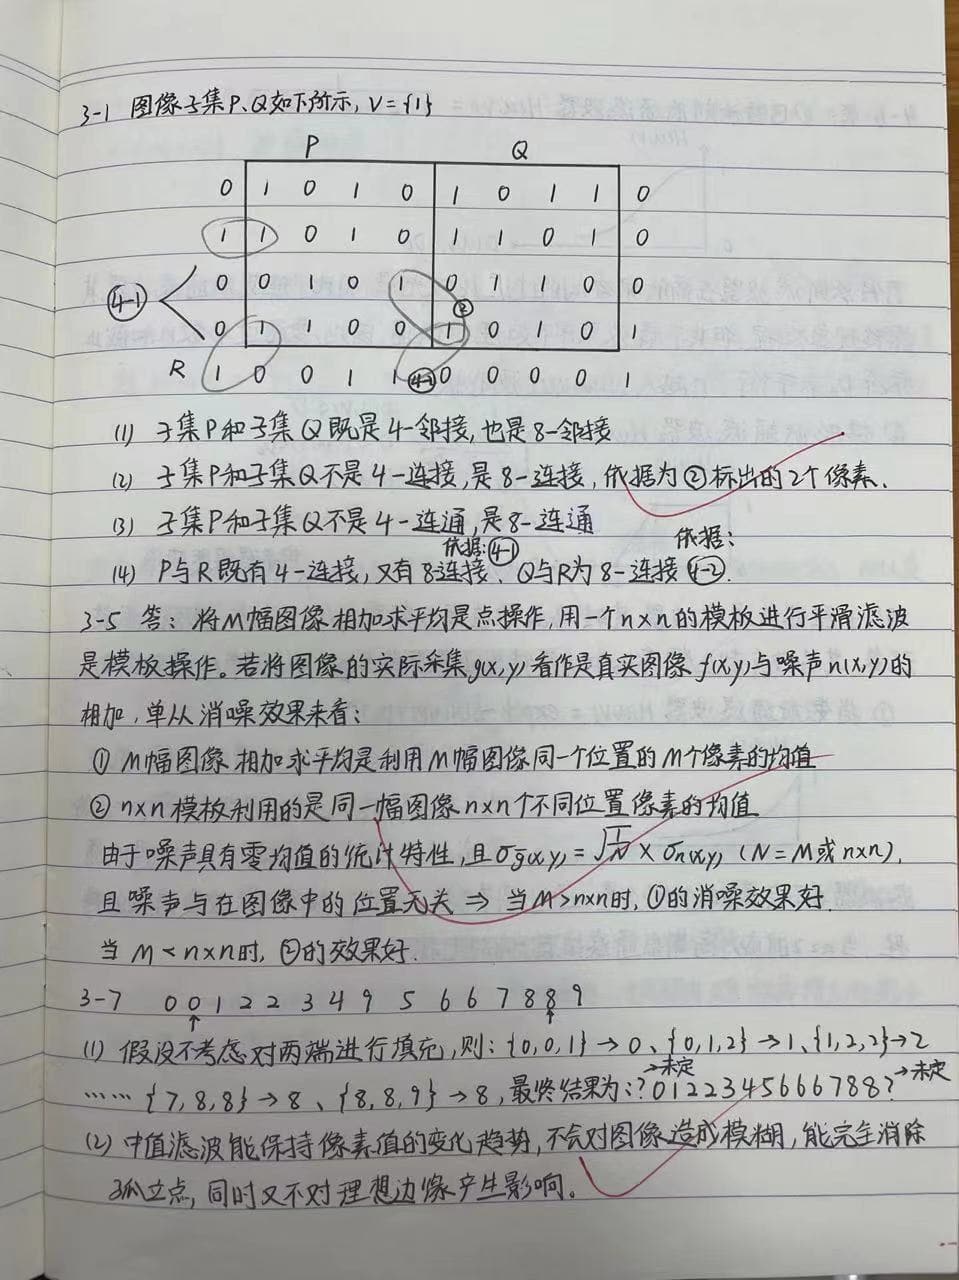 3-1 图像子集P、Q如下所示，V={1}
P Q
0 1 0 1 0 1 0 1 1 0
1 1 0 1 0 1 1 0 1 0
0 0 1 0 1 0 1 1 0 0
④-1 0 1 1 0 0 1 0 1 0 1
②
R 1 0 0 1 1 ④-2 0 0 0 0 1
(1) 子集P和子集Q既是4-邻接，也是8-邻接
(2) 子集P和子集Q不是4-连接，是8-连接，依据为②标出的2个像素.
(3) 子集P和子集Q不是4-连通，是8-连通
依据：④-1 依据：
(4) P与R既有4-连接，又有8连接、Q与R为8-连接 ④-2.
3-5 答：将M幅图像相加求平均是点操作，用一个n×n的模板进行平滑滤波
是模板操作。若将图像的实际采集g(x,y)看作是真实图像f(x,y)与噪声n(x,y)的
相加，单从消噪效果来看：
① M幅图像相加求平均是利用M幅图像同一个位置的M个像素的均值
② n×n模板利用的是同一幅图像n×n个不同位置像素的均值
由于噪声具有零均值的统计特性，且σg̅(x,y)=√(1/N) × σn(x,y) (N=M或n×n),
且噪声与在图像中的位置无关 ⇒ 当M>n×n时，①的消噪效果好.
当M<n×n时，②的效果好.
3-7 0 0 1 2 2 3 4 9 5 6 6 7 8 8 9
↑ ↑
(1) 假设不考虑对两端进行填充，则：{0,0,1}→0、{0,1,2}→1、{1,2,2}→2
→未定 →未定
…… {7,8,8}→8、{8,8,9}→8，最终结果为：?0122345666788?
(2) 中值滤波能保持像素值的变化趋势，不会对图像造成模糊，能完全消除
孤立点，同时又不对理想边缘产生影响。